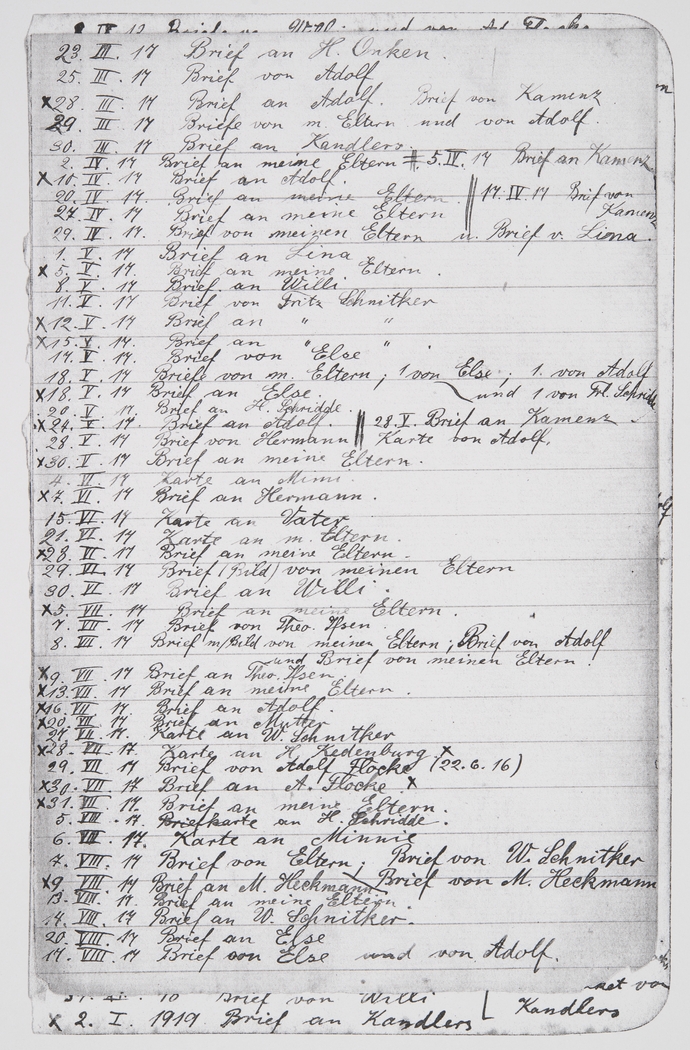 Brief an Willi und von Ad. Flocke
23. III. 17 Brief an H. Onken.
25. III. 17 Brief von Adolf
x28. III. 17 Brief an Adolf. Brief von Kamenz
29. III. 17 Briefe von m. Eltern und von Adolf.
30. III. 17 Brief an Kandlers.
2. IV. 17 Brief an meine Eltern ‖ 5. IV. 17 Brief an Kamenz
x10. IV. 17. Brief an Adolf.
20. IV. 17. Brief an meine Eltern. ‖ 17. IV. 17 Brief von
27. IV. 17 Brief an meine Eltern Kamenz
29. IV. 17. Brief von meinen Eltern u. Brief v. Liona.
1. V. 17 Brief an Lina
x5. V. 17. Brief an meine Eltern.
8. V. 17 Brief an Willi
11. V. 17 Brief von Fritz Schnitker
x12. V. 17 Brief an " "
x15. V. 17. Brief an " "
17. V. 17 Brief von Else
18. V. 17 Briefe von m. Eltern; 1 von Else; 1. von Adolf
x18. V. 17 Brief an Else. und 1 von Frl. Schridde
20. V. 17. Brief an H. Schridde.
x24. V. 17 Brief an Adolf ‖ 28. V. Brief an Kamenz
28. V. 17 Brief von Hermann ‖ Karte von Adolf.
x30. V. 17 Brief an meine Eltern.
4. VI. 17 Karte an Mimi.
x7. VI. 17 Brief an Hermann.
15. VI. 17 Karte an Vater
21. VI. 17 Karte an m. Eltern.
x28. VI. 17 Brief an meine Eltern.
29. VI. 17 Brief (Bild) von meinen Eltern
30 VI. 17 Brief an Willi.
x5. VII. 17 Brief an meine Eltern.
7. VII. 17 Brief von Theo. Ilsen.
8. VII. 17 Brief m/Bild von meinen Eltern; Brief von Adolf
und Brief von meinen Eltern.
x9. VII. 17 Brief an Theo. Ilsen
x13. VII. 17 Brief an meine Eltern.
x16. VII. 17 Brief an Adolf.
x20. VII. 17. Brief an Mutter
27. VII. 17. Karte an W. Schnitker
x28. VII. 17. Karte an H. Kedenburg x
29. VII. 17 Brief von Adolf Flocke (22.6.16)
x30. VII. 17 Brief an A. Flocke. x
x31. VII. 17. Brief an meine Eltern.
5. VIII. 17. Briefkarte an H. Schridde.
6. VIII. 17. Karte an Minnie
7. VIII. 17 Brief von Eltern; Brief von W. Schnitker
x9. VIII. 17 Brief an M. Heckmann Brief von M. Heckmann
13. VIII. 17. Brief an meine Eltern.
14. VIII. 17 Brief an W. Schnitker.
20. VIII. 17 Brief an Else
17. VIII. 17 Brief von Else und von Adolf.
Brief von Willi
x 2. I. 1919 Brief an Kandlers Kandlers